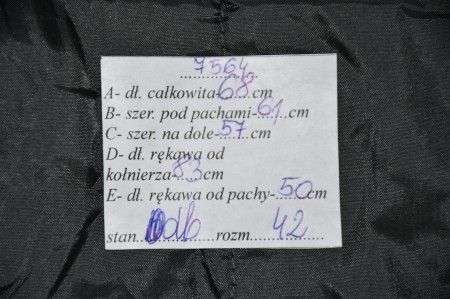 7564
A- dł. całkowita-68cm
B- szer. pod pachami-61cm
C- szer. na dole-57cm
D- dł. rękawa od
kołnierza-83cm
E- dł. rękawa od pachy-50cm
stan db rozm. 42